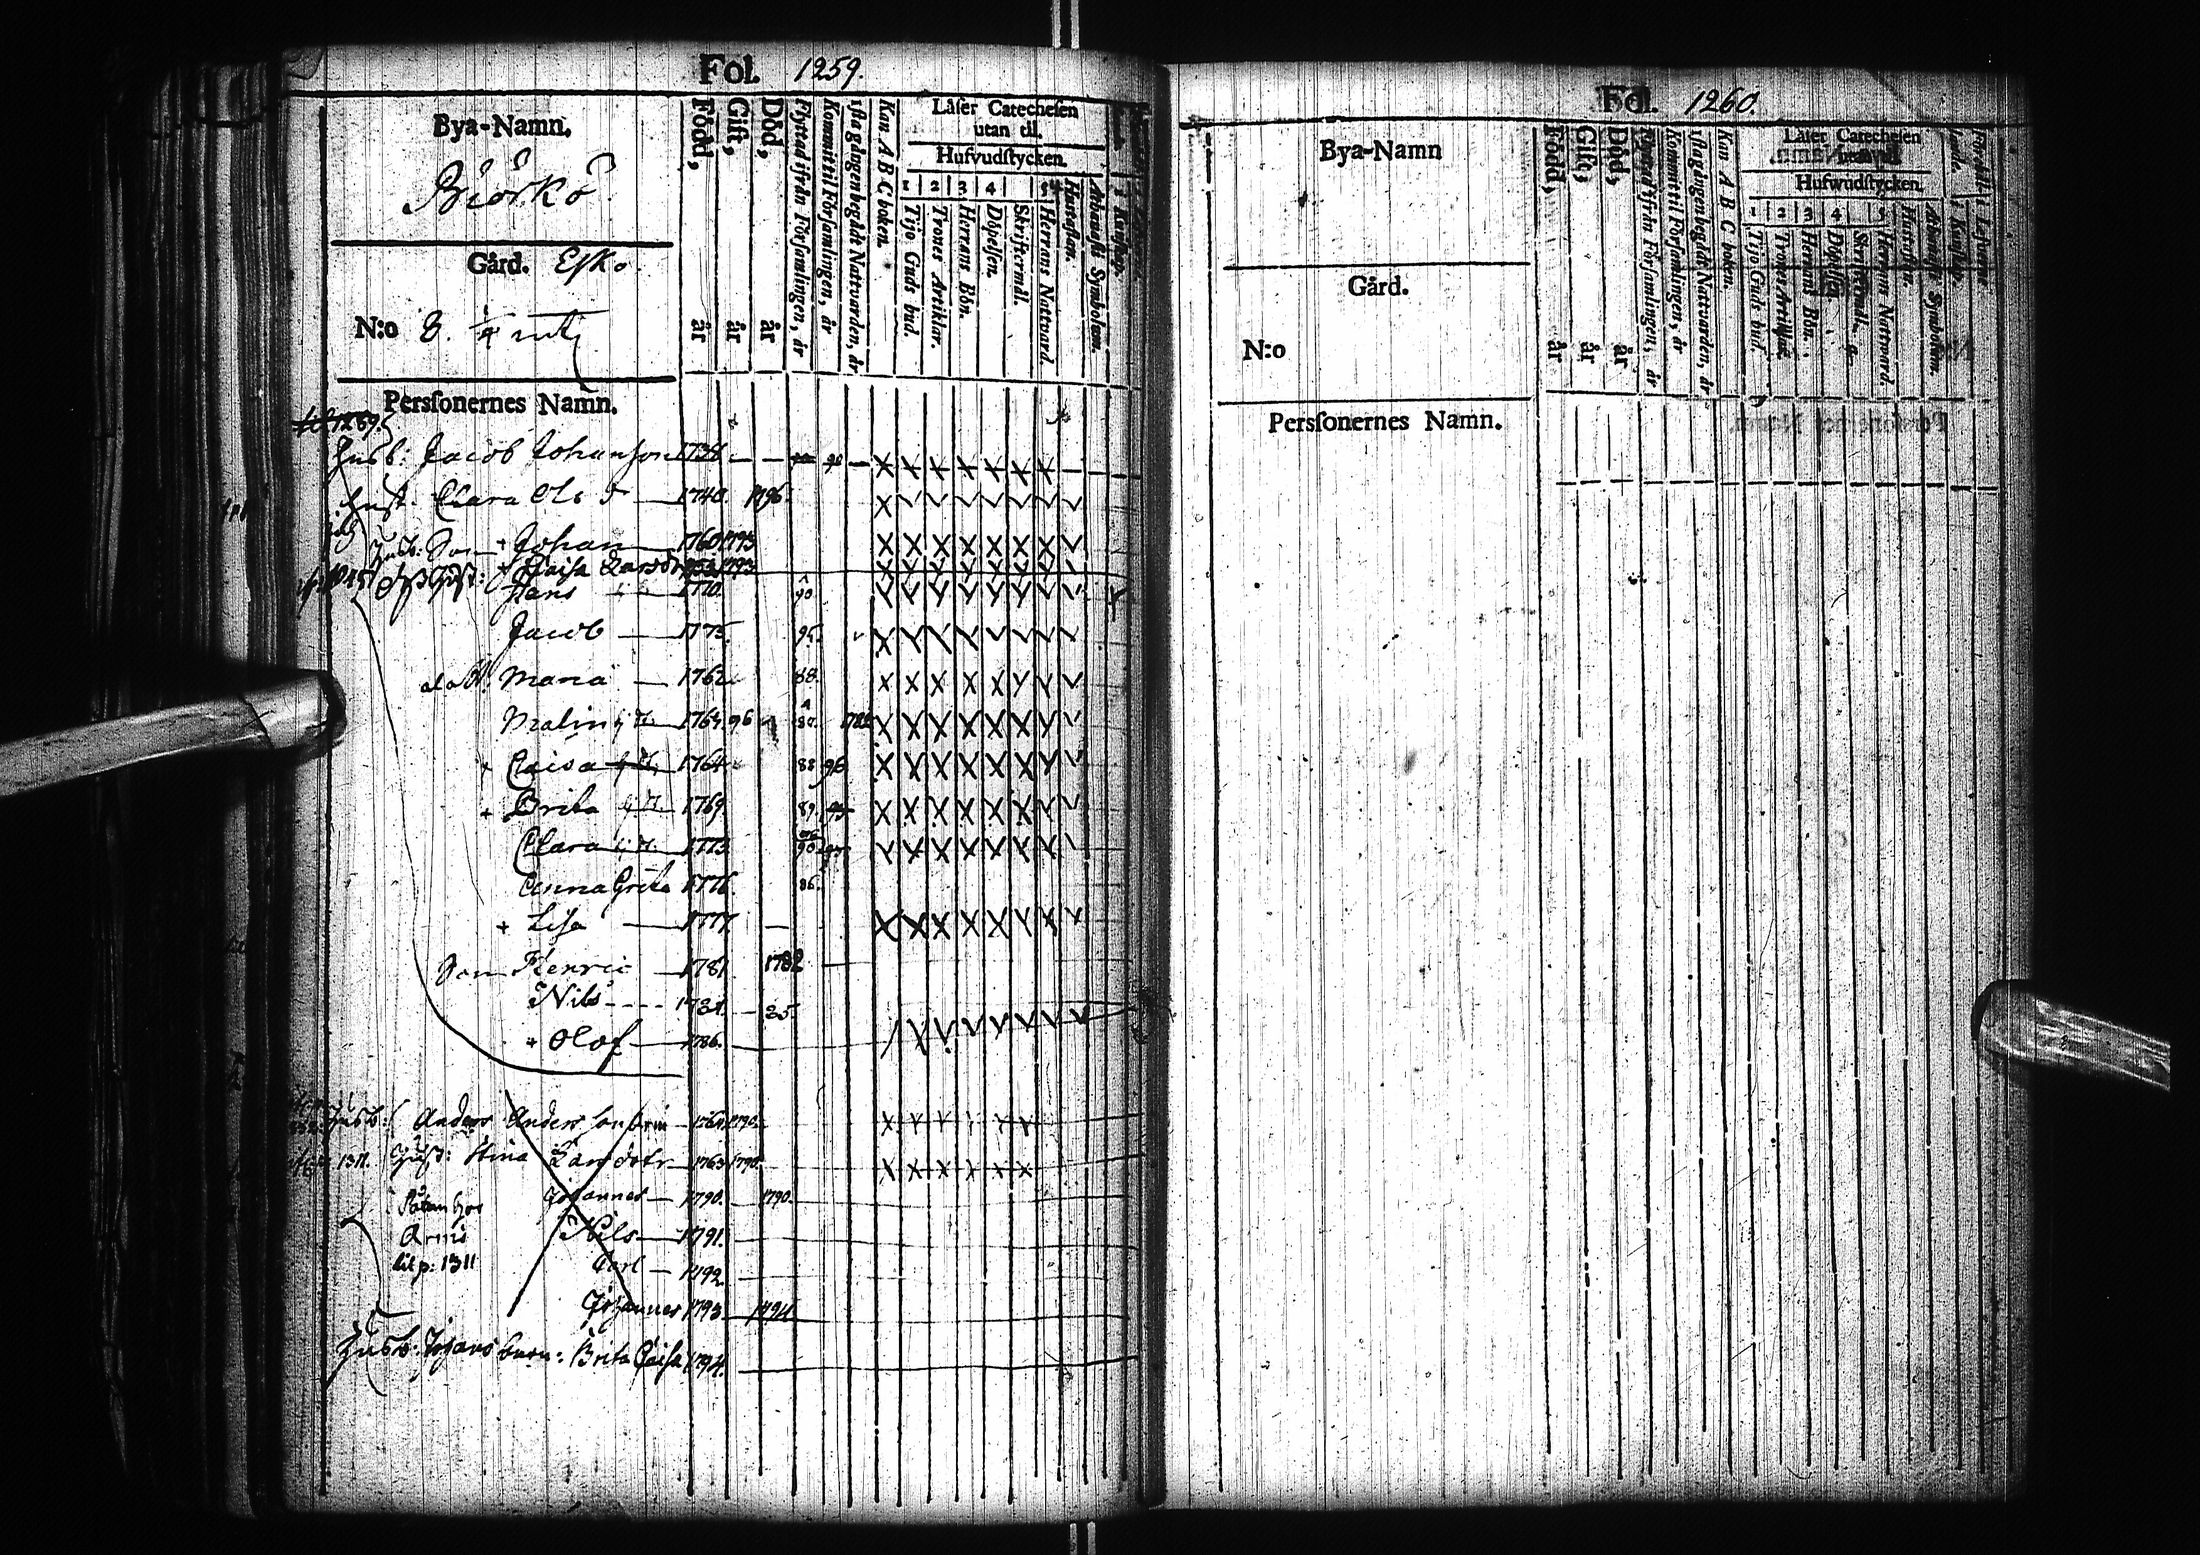 Fol. 1259.
Bya-Namn.
Biörkö
Gård. Esko.
N:o 8. 1/4 mtl
Född, år
Gift, år
Död, år
Flyttad ifrån Församlingen, år
Kommit til Församlingen, år
1sta gången begådt Nattvarden, år
Kan A B C boken.
Läser Catechesen
utan til.
Hufvudstycken.
1 2 3 4 5
Tijo Guds bud.
Trones Artiklar.
Herrans Bön.
Döpelsen.
Skriftermål.
Herrans Nattvard.
Hustaflan.
Athanasii Symbolum.
Personernes Namn.
Husb: Jacob Johansson 1738. — —
Hust. Clara Ols d — 1740. 1796.
Husb: Son + Johan 1760 1793
Hust: Caisa Larsd 1793
Hans 1770. 90
Jacob — 1775. 95.
Maria — 1762 88.
Malin 1764. 96
Caisa 1764 88 96
+ Brita 1769. 89. 93
Clara 1773 90
Anna Greta 1776. 86.
+ Lisa — 1777. —
Son Henric — 1781. 1782
Nils - - - 85.
+ Olof — 1786.
Husb: Anders Andersson 1790.
1311. Hust: Stina Larsdotr 1763 1790.
Johannes — 1790. 1790.
Nils — 1791.
til p: 1311 Carl — 1792.
Johannes 1793 1794
Husb: Johans barn: Brita Caisa 1794.
Fol. 1260.
Bya-Namn
Gård.
N:o
Född, år
Gift, år
Död, år
Flyttad ifrån Församlingen, år
Kommit til Församlingen, år
1sta gången begådt Nattvarden, år
Kan A B C boken.
Läser Catechesen
utan til.
Hufwudstycken.
1 2 3 4 5
Tijo Guds bud.
Trones Artiklar.
Herrans Bön.
Döpelsen
Skriftermål.
Herrans Nattvard.
Hustaflan.
Athanasii Symbolum.
Personernes Namn.